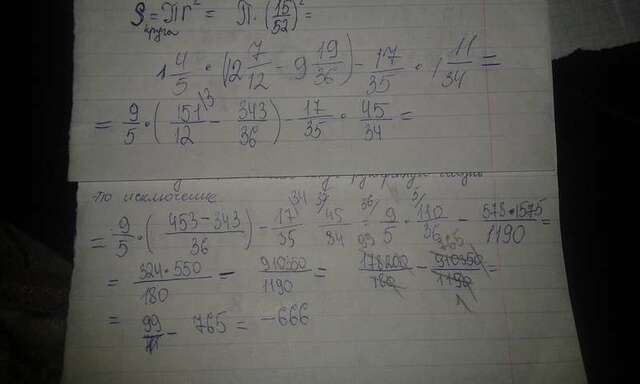 S круга = Пr² = П · (15/52)² =
1 4/5 · (12 7/12 - 9 19/36) - 17/35 · 1 11/34 =
= 9/5 · (151/12 \3 - 343/36) - 17/35 · 45/34 =
по исключение
= 9/5 · (453-343/36) - 17/35 34/ 45/34 = 9/5 36/ · 110/36 5/ - 573·1575/1190 =
= 324·550/180 - 910350/1190 = 178200/180 99 - 910350/1190 =
= 99/1 - 765 = -666